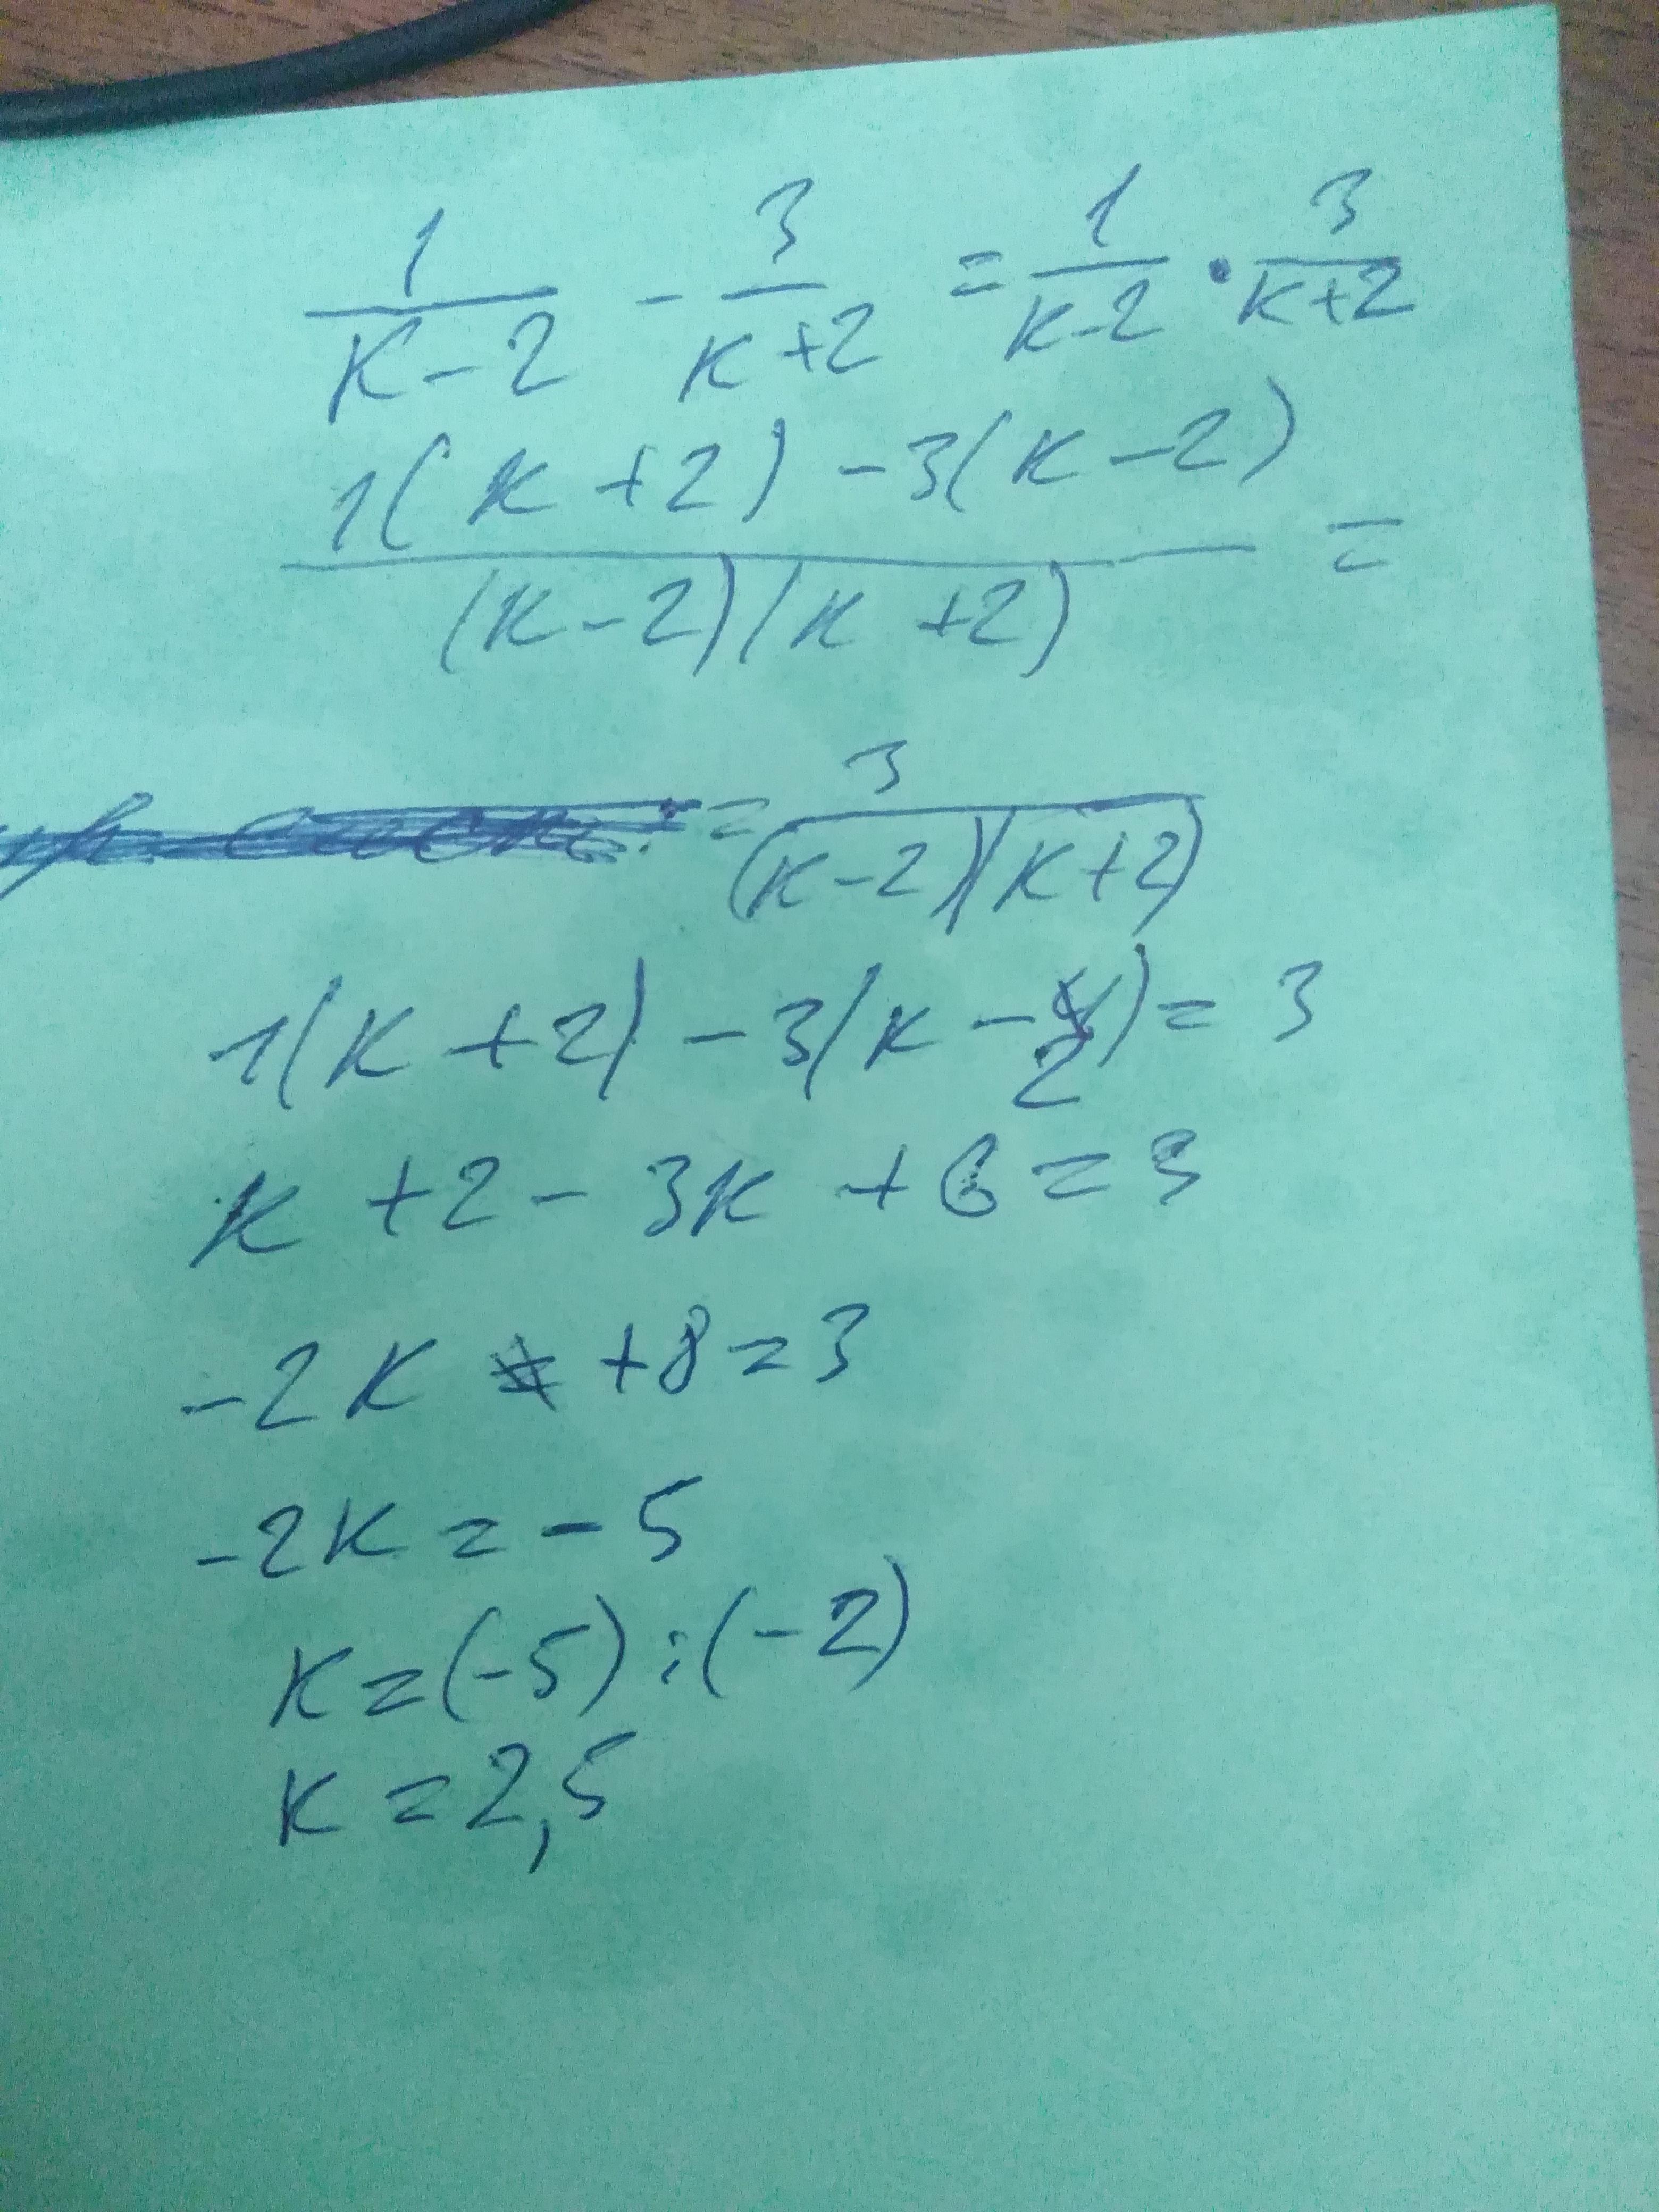 1/(k-2) - 3/(k+2) = 1/(k-2) · 3/(k+2)
(1(k+2) - 3(k-2))/((k-2)(k+2)) =
= 3/((k-2)(k+2))
1(k+2) - 3(k-2) = 3
k + 2 - 3k + 6 = 3
-2k + 8 = 3
-2k = -5
k = (-5) : (-2)
k = 2,5